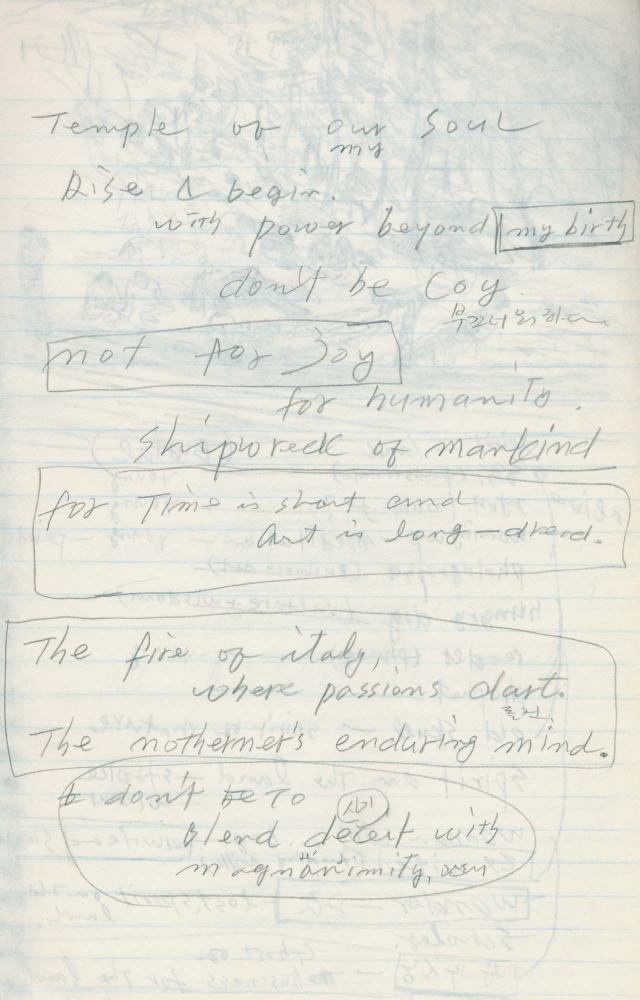 Temple of our soul
my
Rise & begin.
with power beyond my birth
don't be coy.
부끄러워하다
not for Joy
for humanity.
Shipwreck of mankind
for Time is short and
Art is long—dread.
The fire of italy,
where passions dart.
The notherner's enduring mind.
don't be To
Blend deceit with
magnanimity,